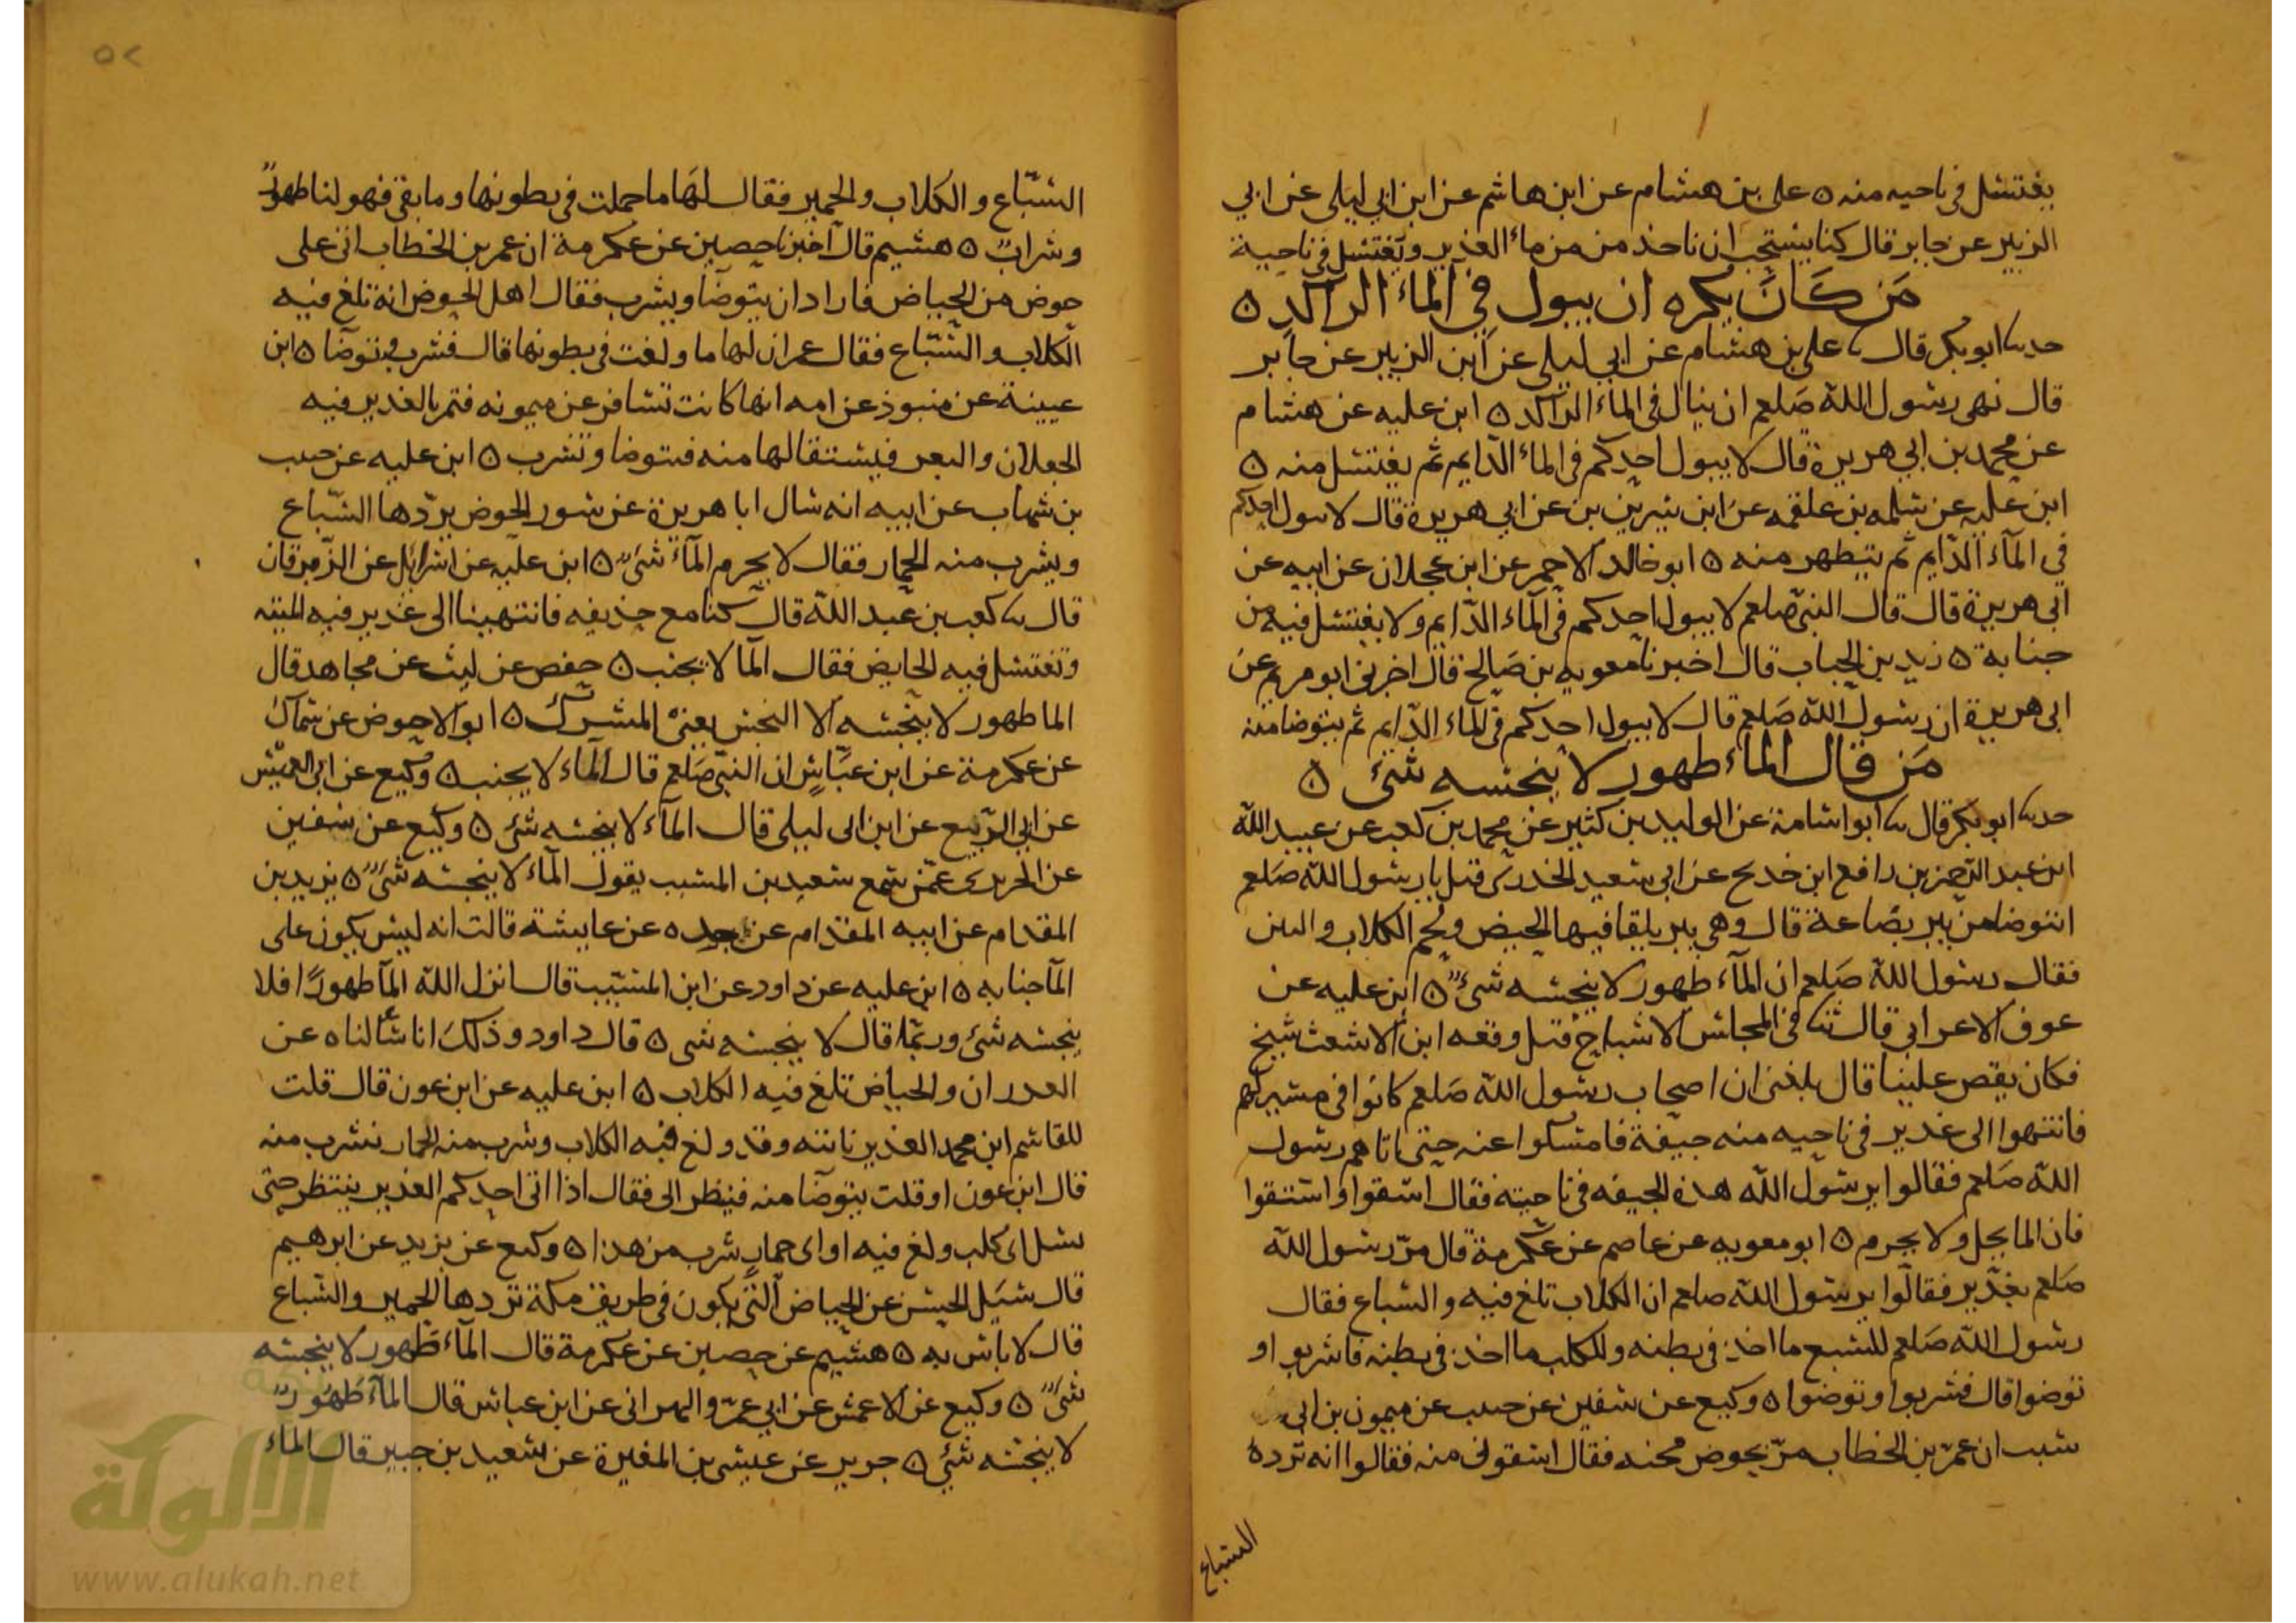 يغتسل فى ناحيه منه ٥ على بن هشام عن ابن هاشم عن ابن ابى ليلى عن ابى
الزبير عن جابر قال كنا يستحب ان ناخذ من من ماء الغدير ونغتسل فى ناحية
مَن كَانَ يكره ان يبول فى الماء الراكد ٥
حدثنا ابو بكر قال ثنا على بن هشام عن ابى ليلى عن ابن الزبير عن جابر
قال نهى رسول الله صَلعم ان يبال فى الماء الراكد ٥ ابن عليه عن هشام
عن محمد بن ابى هريرة قال لا يبول احدكم فى الماء الدايم ثم يغتسل منه ٥
ابن عليه عن سلمه بن علقمه عن ابن سيرين بن عن ابى هريرة قال لا يبول احدكم
في المآء الدّايم ثم يتطهر منه ٥ ابو خالد الاحمر عن ابن عجلان عن ابيه عن
ابى هريرة قال قال النبى صَلعم لا يبول احدكم فى المآء الدّايم ولا يغتسل فيه من
جنابة ٥ زيد بن الحباب قال اخبرنا معويه بن صَالح قال اخبرنى ابو مريم عن
ابى هريرة ان رسول الله صَلعم قال لا يبول احدكم فى الماء الدّايم ثم يتوضا منه
مَن قال الماء طهور لا ينجسه شئ ٥
حدثنا ابو بكر قال ثنا ابو اسامة عن الوليد بن كثير عن محمد بن كعب عن عبيد الله
ابن عبد الرحمن بن رافع ابن خديج عن ابى سعيد الخدرى قيل يا رسول الله صَلعم
انتوضا من بير بضاعة قال وهى بير يلقا فيها الحيض ولحم الكلاب والنتن
فقال رسول الله صَلعم ان المآء طهور لا ينجسه شئٌ ٥ ابن عليه عن
عوف الاعرابى قال ثنا فى المجالس الاشياخ قبل وقعه ابن الاشعث شيخ
فكان يقص علينا قال بلغنى ان اصحاب رسول الله صَلعم كانوا فى مسير لهم
فانتهوا الى غدير فى ناحيه منه جيفة فامسكوا عنه حتى اتاهم رسول
الله صَلعم فقالوا يرسول الله هذه الجيفه فى ناحيته فقال اسقوا واستقوا
فان الما يحل ولا يحرم ٥ ابو معويه عن عاصم عن عكرمة قال مرّ رسول الله
صَلعم بغدير فقالوا يرسول الله صلعم ان الكلاب تلغ فيه والسباع فقال
رسول الله صَلعم للسبع ما اخذ فى بطنه وللكلب ما اخذ فى بطنه فاشربو او
توضوا قال فشربوا وتوضوا ٥ وكيع عن سفين عن حبيب عن ميمون بن ابى
شبيب ان عمر بن الخطاب مرّ بحوض مجنه فقال اسقونى منه فقالوا انه ترده
السباع
٥٢
السّباع والكلاب والحمير فقال لها ما حملت فى بطونها وما بقى فهو لنا طهورٌ
وشرابٌ ٥ هشيم قال اخبرنا حصين عن عكرمة ان عمر بن الخطاب اتى على
حوض من الحياض فاراد ان يتوضا ويشرب فقال اهل الحوض انه تلغ فيه
الكلاب والسّباع فقال عمر ان لها ما ولغت فى بطونها قال فشرب وتوضا ٥ ابن
عيينة عن منبوذ عن امه انها كانت تسافر عن ميمونه فتمر بالغدير فيه
الجعلان والبعر فيستقا لها منه فتتوضا وتشرب ٥ ابن عليه عن حبيب
بن شهاب عن ابيه انه سال ابا هريرة عن سور الحوض يردها السّباع
ويشرب منه الحمار فقال لا يحرم المآء شئٌ ٥ ابن عليه عن اسرائل عن الزّبرقان
قال ثنا كعب بن عبد الله قال كنا مع حذيفه فانتهينا الى غدير فيه الميته
وتغتسل فيه الحايض فقال الما لا يجنب ٥ حفص عن ليث عن مجاهد قال
الما طهور لا ينجسه الا النجس يعنى المشرك ٥ ابو الاحوص عن سماك
عن عكرمة عن ابن عبّاسٍ ان النبى صَلعم قال المآء لا يجنب ٥ وكيع عن ابى العميس
عن ابى الربيع عن ابن ابى ليلى قال المآء لا ينجسه شئ ٥ وكيع عن سفين
عن الجريرى عمّن سمع سعيد بن المسيب يقول المآء لا ينجسه شئٌ ٥ يزيد بن
المقدام عن ابيه المقدام عن جده عن عايشة قالت انه ليس يكون على
المآ جنابه ٥ ابن عليه عن داود عن ابن المسيّب قال انزل الله المآ طهورًا فلا
ينجسه شئ وربما قال لا ينجسه شى ٥ قال داود وذلك انا سألناه عن
الغدران والحياض تلغ فيه الكلاب ٥ ابن عليه عن ابن عون قال قلت
للقاسم ابن محمد الغدير ناتيه وقد ولغ فيه الكلاب وشرب منه الحمار نشرب منه
قال ابن عون او قلت يتوضا منه فنظر الى فقال اذا اتى احدكم الغدير ينتظر حتى
يسل اى كلب ولغ فيه او اى حمار شرب من هذا ٥ وكيع عن يزيد عن ابرهيم
قال سيل الحسن عن الحياض التى يكون فى طريق مكة تردها الحمير والسّباع
قال لا باس به ٥ هشيم عن حصين عن عكرمة قال المآء طهور لا ينجسه
شئٌ ٥ وكيع عن الاعمش عن ابى عمرو البهرانى عن ابن عباس قال المآء طهورٌ
لا ينجسه شئ ٥ جرير عن عيسى بن المغيرة عن سعيد بن جبير قال الماء
الألوكة
www.alukah.net